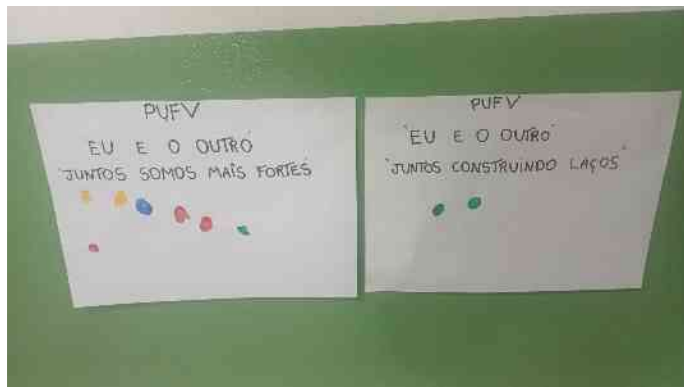 PUFV
EU E O OUTRO
"JUNTOS SOMOS MAIS FORTES
PUFV
"EU E O OUTRO"
"JUNTOS CONSTRUINDO LAÇOS"